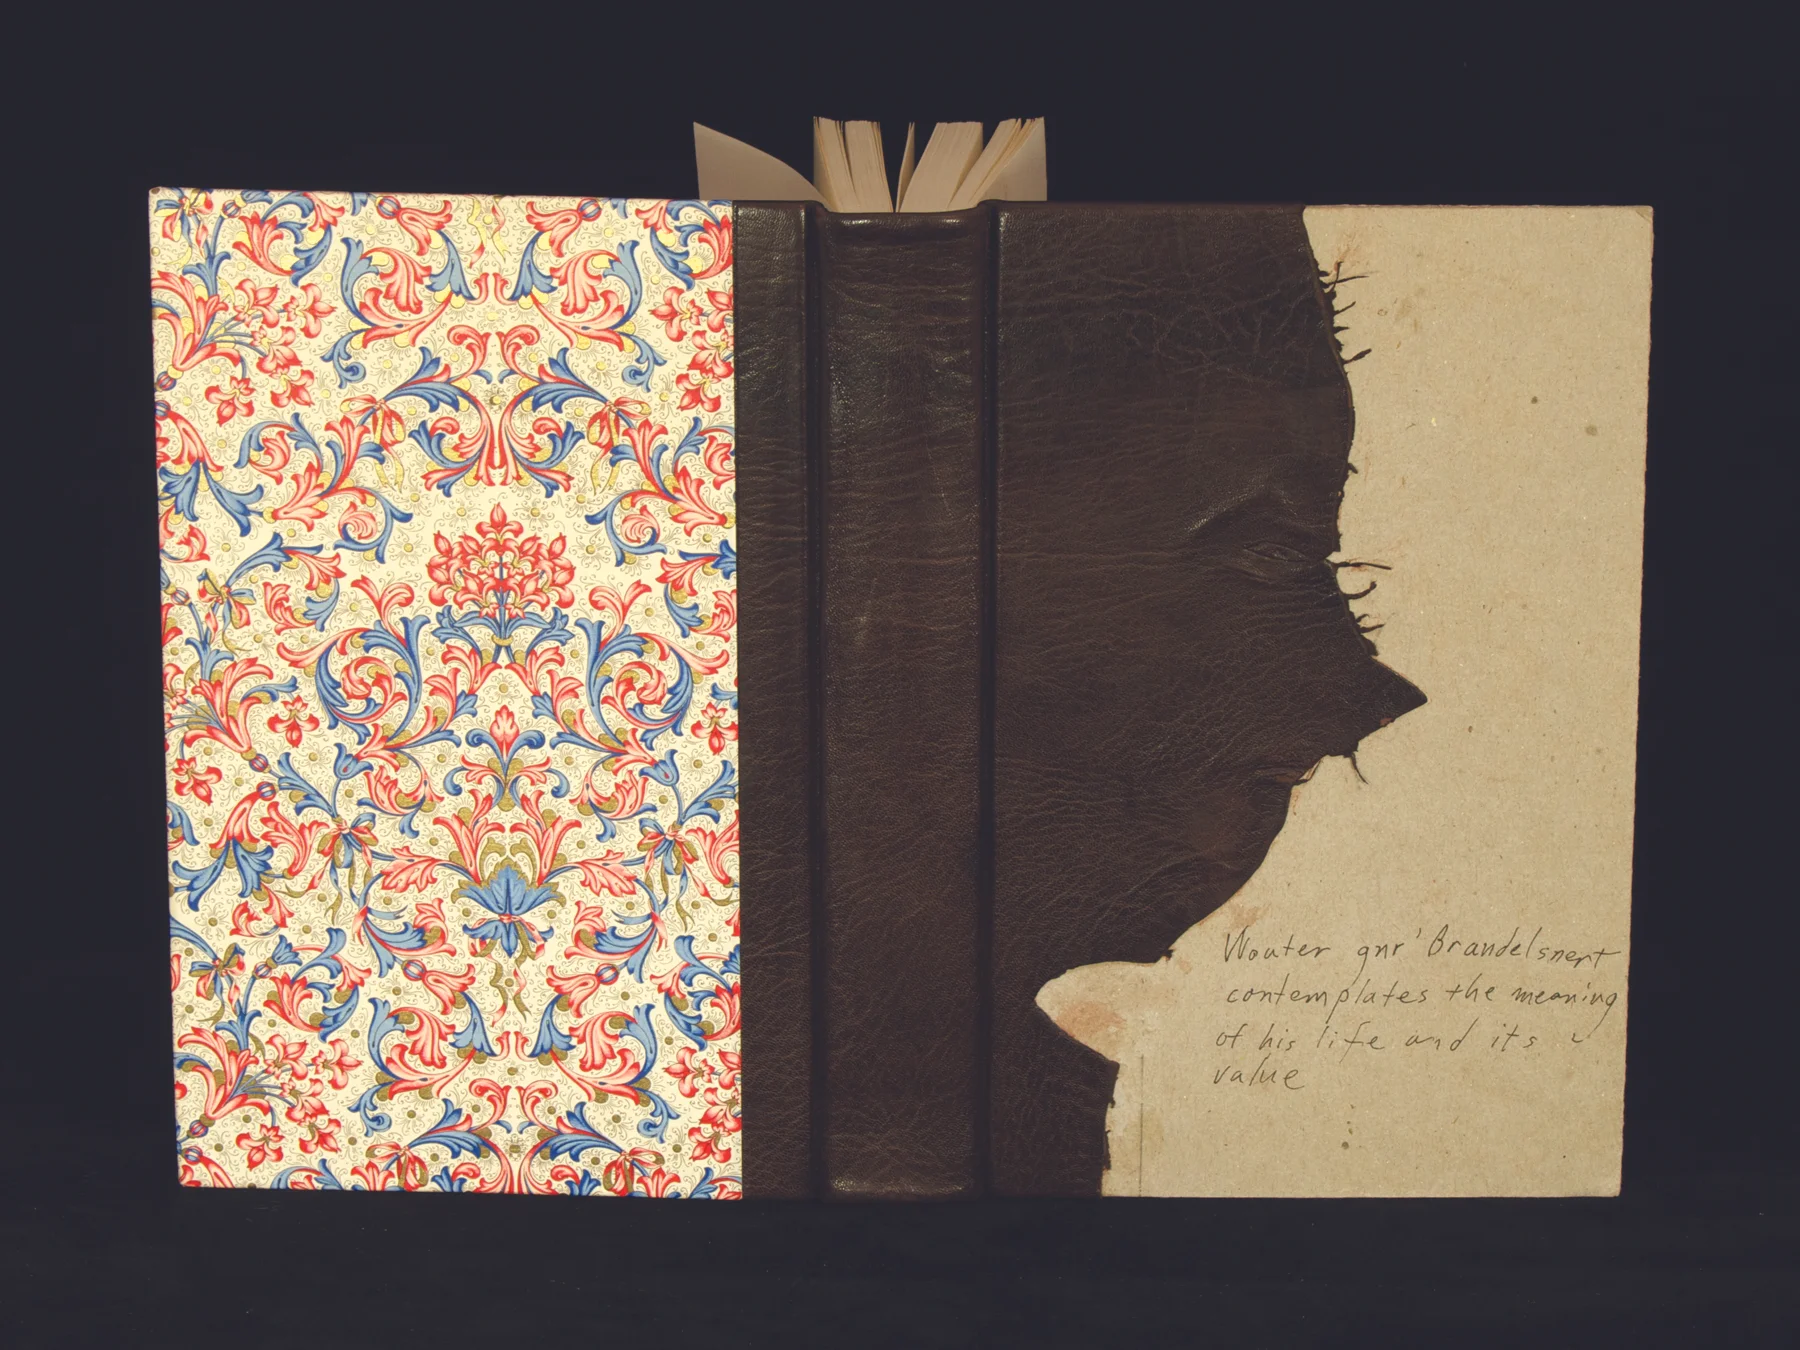 Wouter gnr' Brandelsnert
contemplates the meaning
of his life and its
value